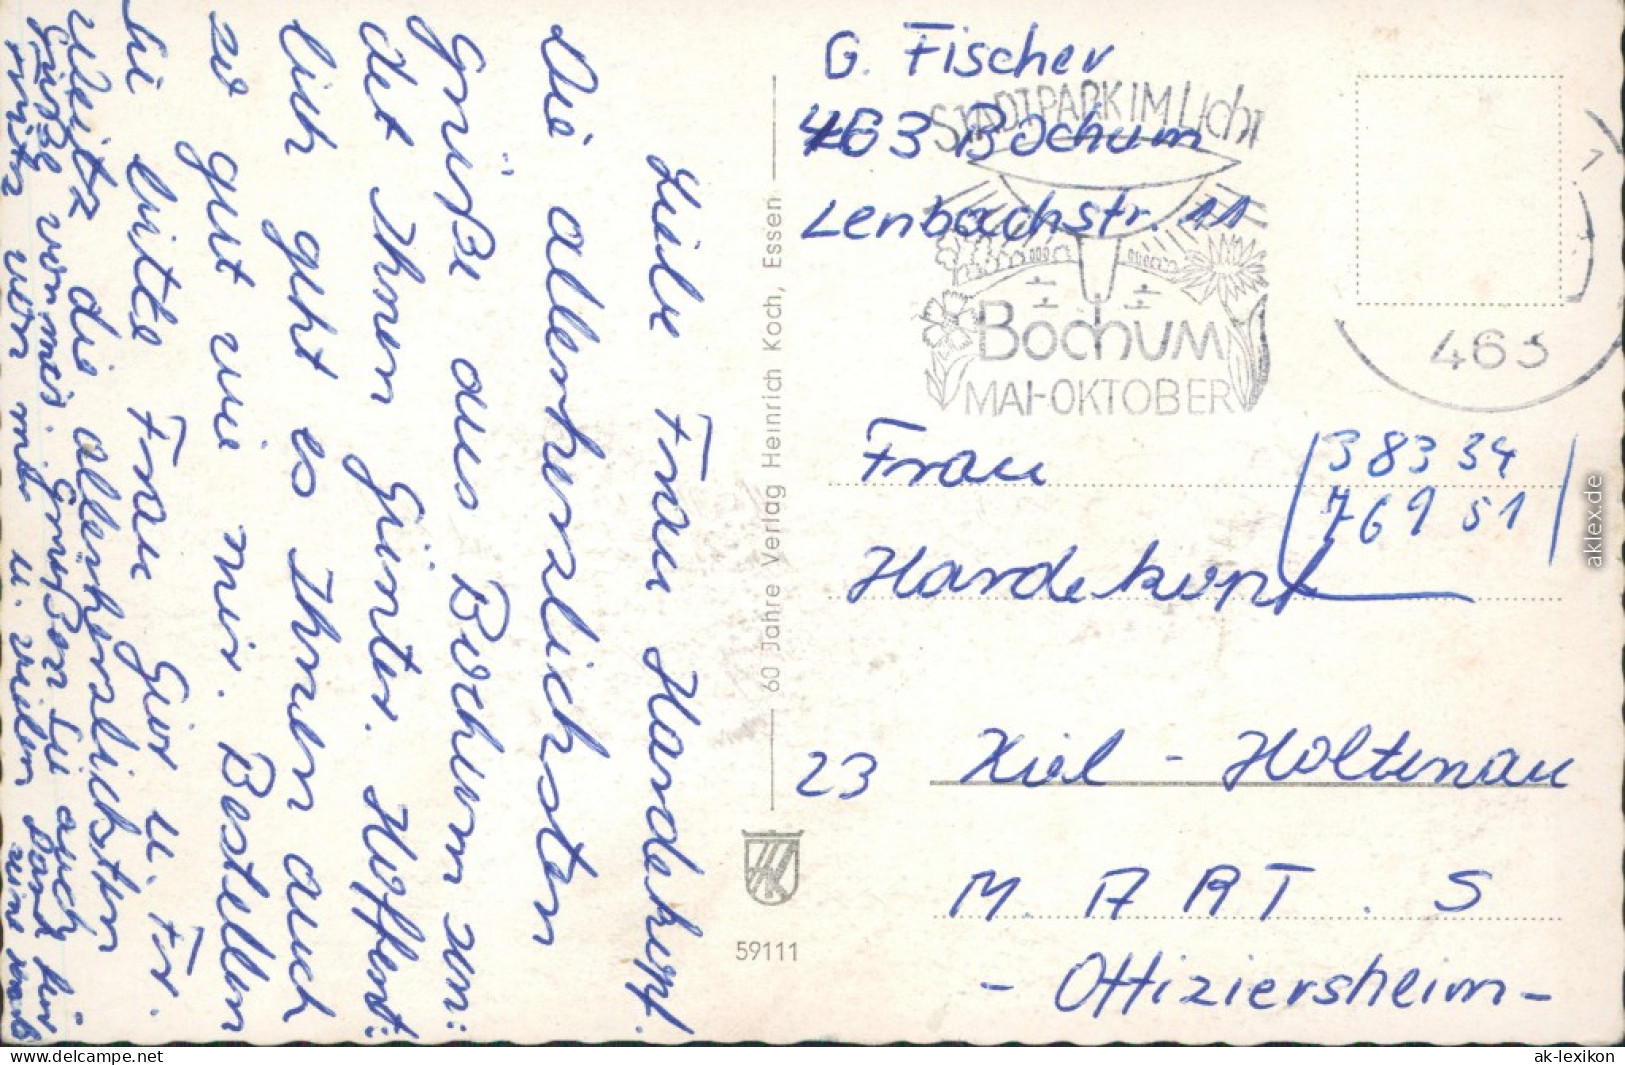 Liebe Frau Hardekopf.
Die allerherzlichsten
Grüße aus Bochum sen:
det Ihnen Günter. Hoffent:
lich geht es Ihnen auch
so gut wie mir. Bestellen
Sie bitte Frau Gior u. Fr.
Weitz die allerherzlichsten
Grüße von mir. Grüßen Sie auch
von mir u. vielen Dank für
60 Jahre Verlag Heinrich Koch, Essen
59111
G. Fischer
463 Bochum
Lenbachstr. 11
STADTPARK IM Licht
BOCHUM
MAI-OKTOBER
463
Frau
38334
76951
Hardekopf
23 Kiel - Holtenau
M. A R T. S
- Offiziersheim -
aklex.de
https://www.akpool.de
ak-lexikon